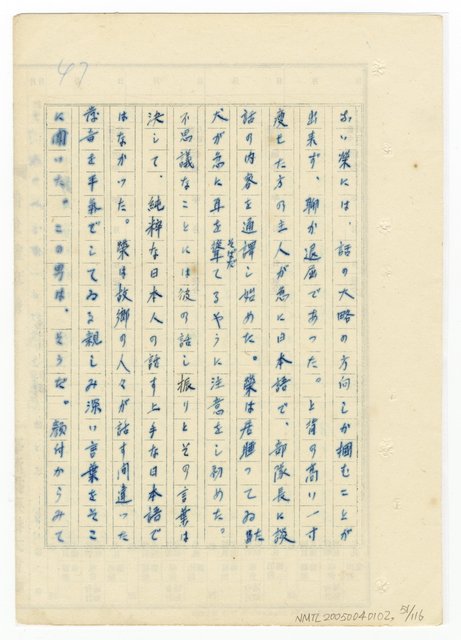 47
ない榮には、話の大略の方向しか摑むことが
出来ず、聊か退屈であつた。上背の高い一寸
痩せた方の主人が急に日本語で、部隊長に談
話の内容を通譯し始めた。榮は居睡つてゐた
犬が急に耳を聳てるやうに注意をし初めた。
そばだ
不思議なことには彼の話し振りとその言葉は
決して、純粹な日本人の話す上手な日本語で
はなかつた。榮は故郷の人々が話す間違つた
發音を平氣でしてゐる親しみ深い言葉をそこ
に聞いた。この男は、さうだ。顔付からみて
NMTL20050040102
51/116